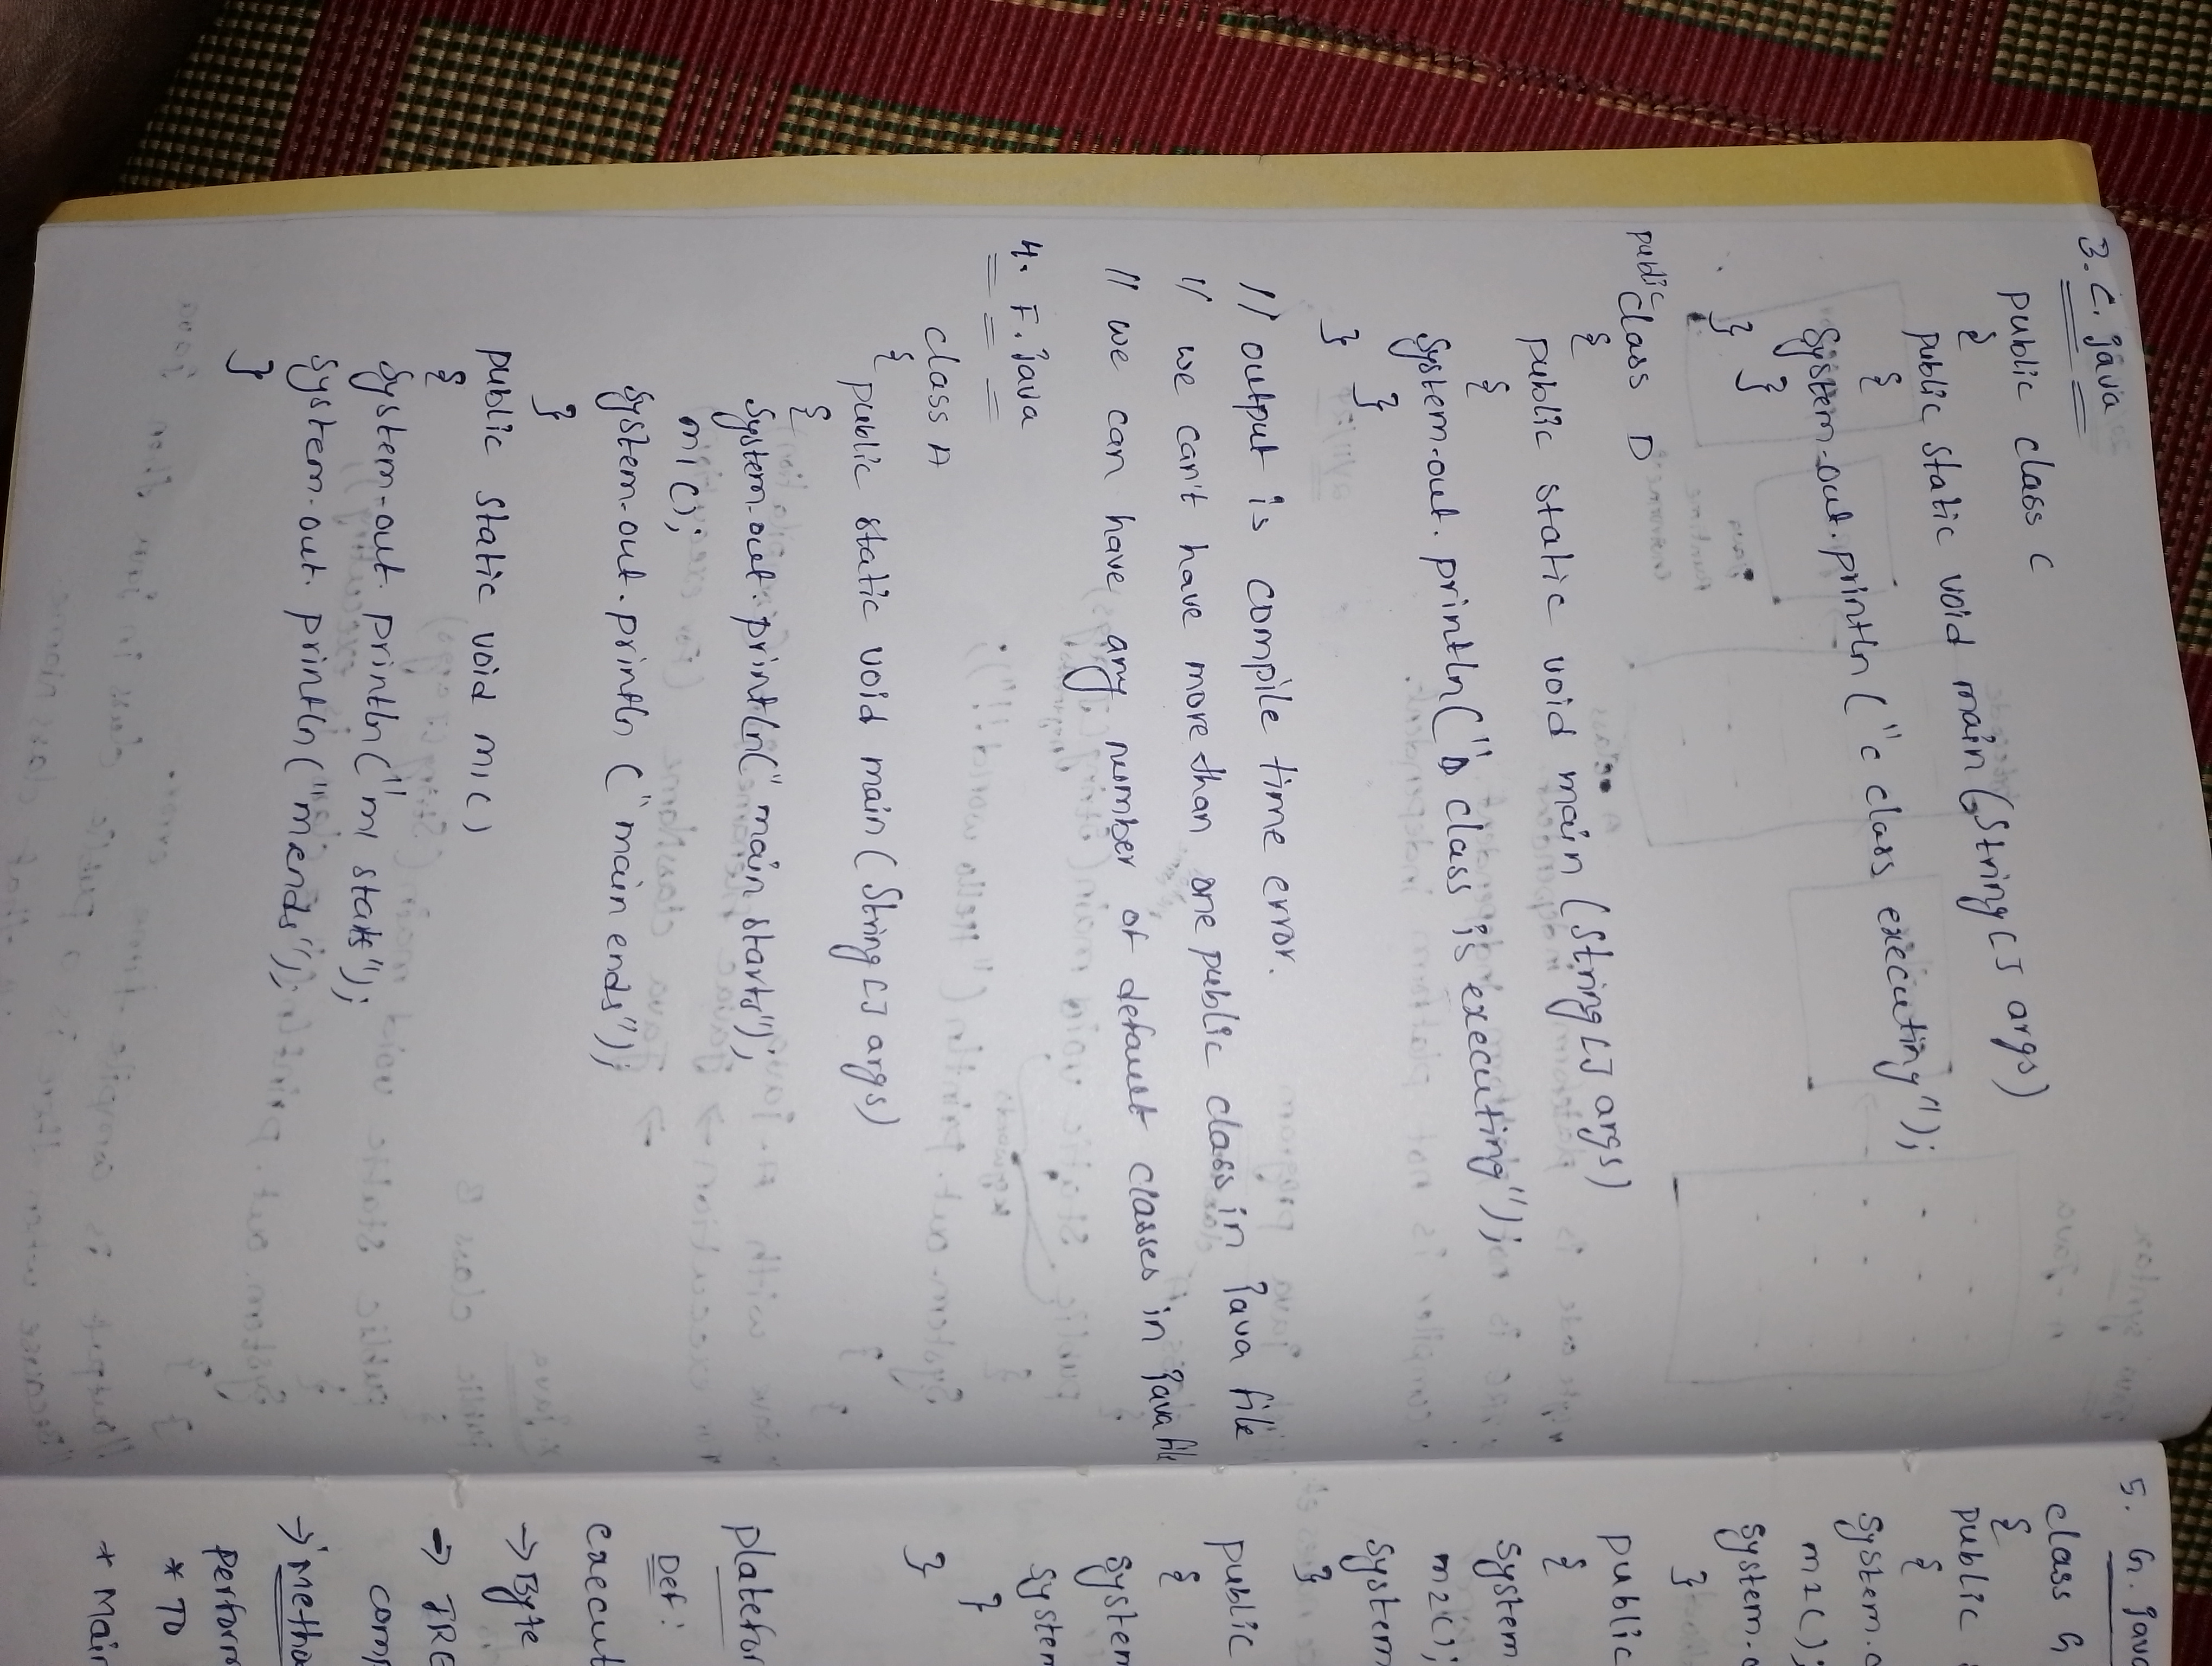 3. C. java
public class C
{
public static void main(String[] args)
{
System.out.println("c class executing");
}
}
public class D
{
public static void main (String[] args)
{
System.out.println("D class is executing");
}
}
// output is compile time error.
// we can't have more than one public class in java file
// we can have any number of default classes in java file
4. F. java
class A
{
public static void main(String[] args)
{
System.out.println("main starts");
m1();
System.out.println("main ends");
}
public static void m1()
{
System.out.println("m1 starts");
System.out.println("m ends");
}
5. G. java
class G
{
public
{
System.o
m2();
System.o
}
public
{
System
m2();
System
}
public
{
System
System
}
}
platefor
Def:
execut
→ Byte
→ JRE
comp
→ metho
perform
* TO
* Main